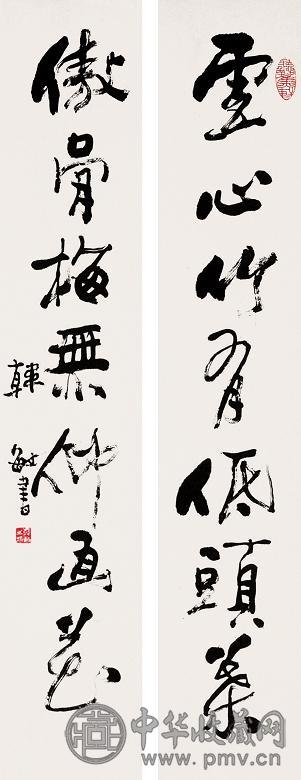 虛心竹有低頭葉
傲骨梅無仰面花
韓敏書
中华收藏网
www.pmv.cn